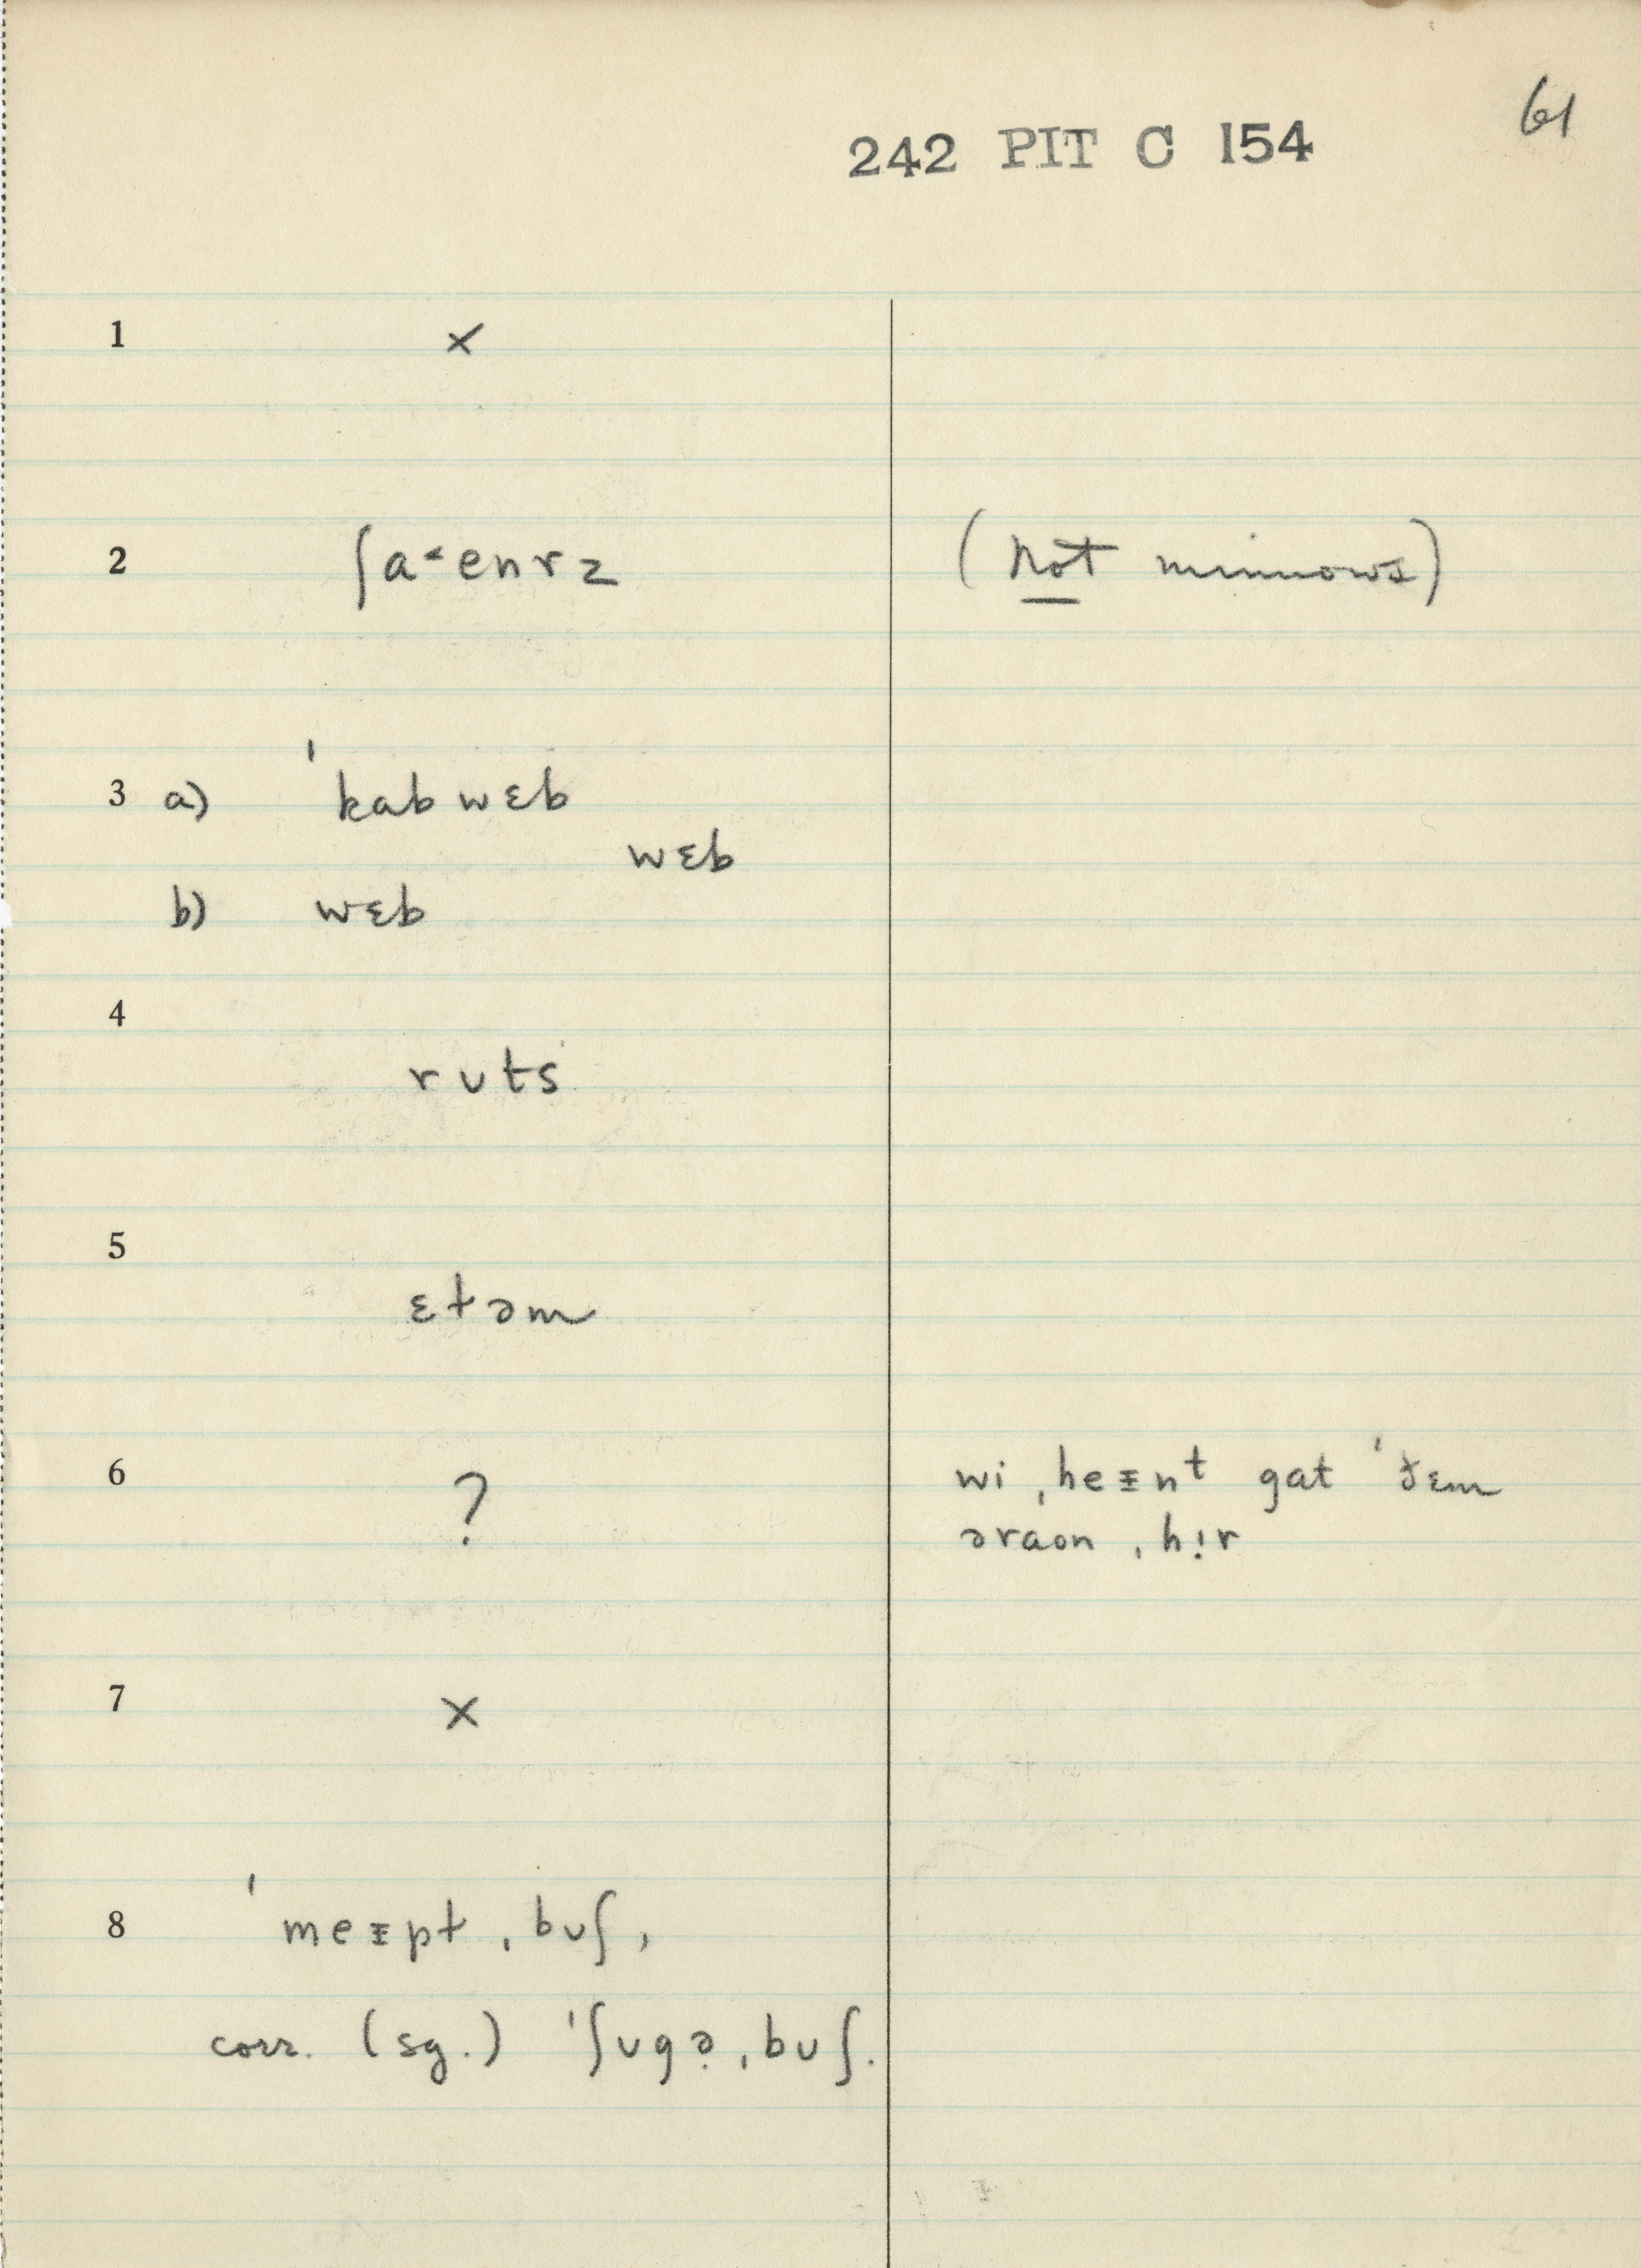 61
242 PIT C 154
1 ×
2 ʃaˑenrz (not minnows)
3 a) ˈkabwɛb
wɛb
b) wɛb
4
rʊts
5
ɛtəm
6 ? wi ˌheᵻnt gat ˈðɛm
əraon ˌhịr
7 ×
8 ˈmeᵻpt ˌbʊʃ,
corr. (sg.) ˈʃʊgə̣ ˌbʊʃ.